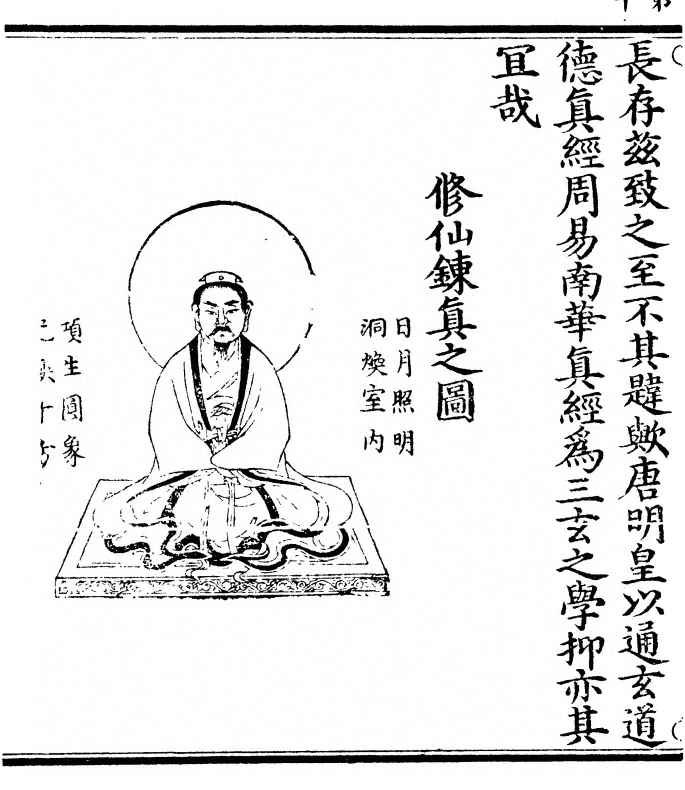 長存茲致之至不其韙歟唐明皇以通玄道
德眞經周易南華眞經爲三玄之學抑亦其
冝哉
修仙鍊眞之圖
日月照明
洞煥室内
項生圓象